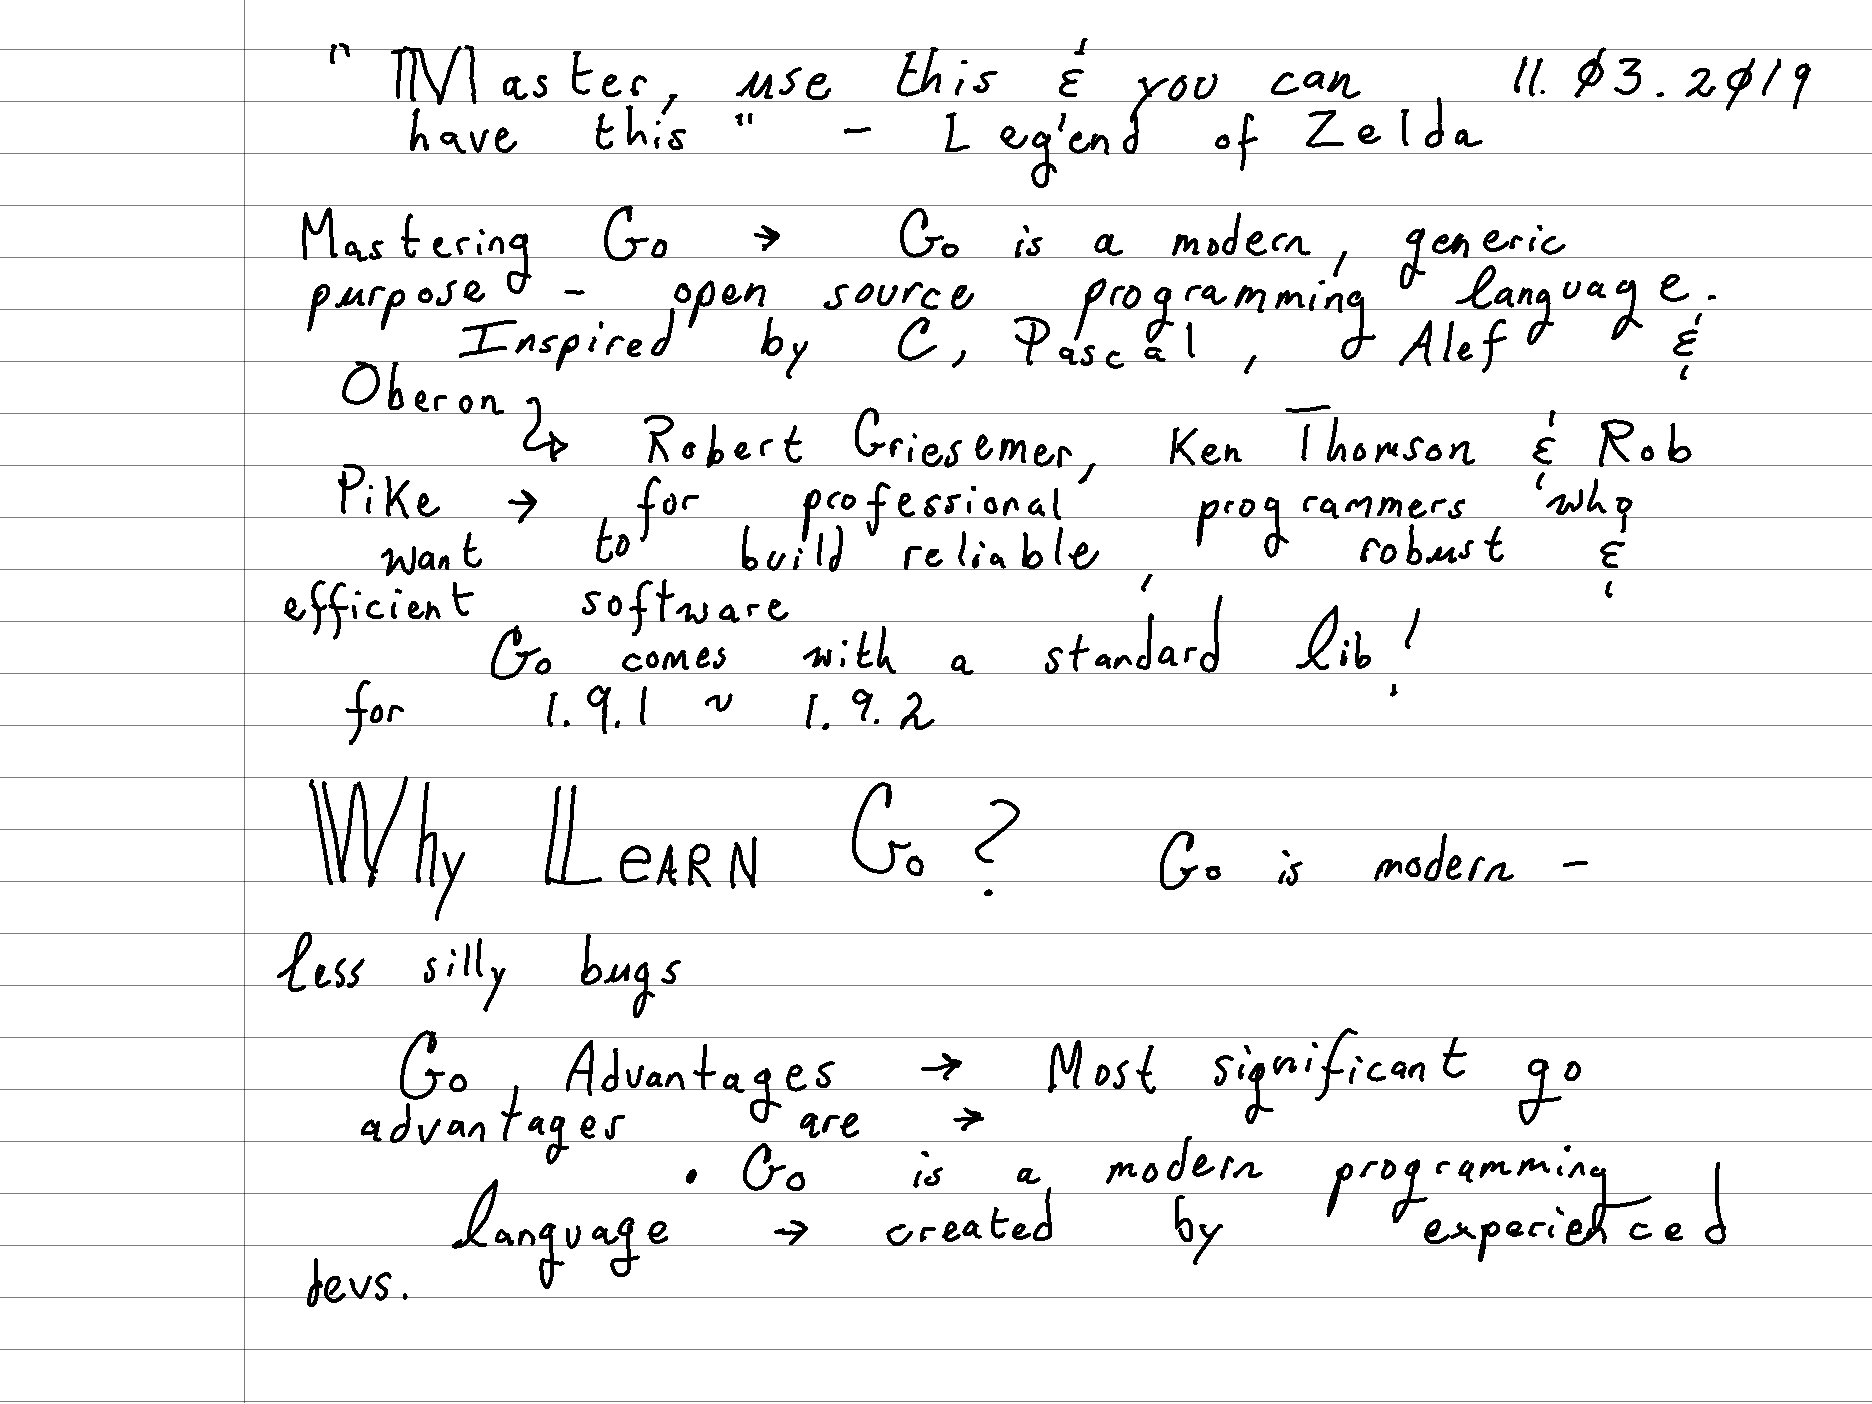 "Master, use this & you can 11.03.2019
have this" - Legend of Zelda
Mastering Go → Go is a modern, generic
purpose - open source programming language.
Inspired by C, Pascal, Alef &
Oberon
↳ Robert Griesemer, Ken Thomson & Rob
Pike → for professional programmers who
want to build reliable, robust &
efficient software
Go comes with a standard lib!
for 1.9.1 ~ 1.9.2
Why LEARN Go? Go is modern -
less silly bugs
Go Advantages → Most significant go
advantages are →
• Go is a modern programming
language → created by experienced
devs.